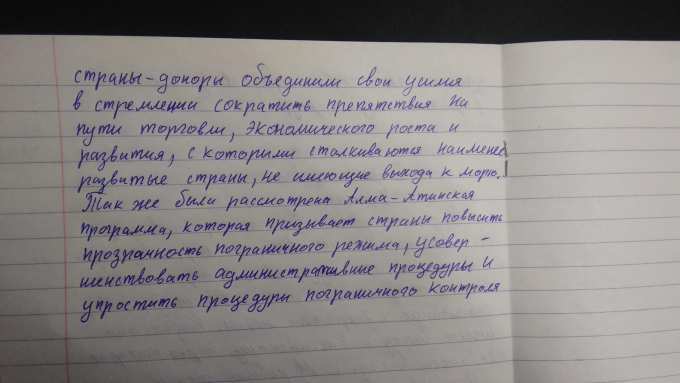 страны-доноры объединили свои усилия
в стремлении сократить препятствия на
пути торговли, экономического роста и
развития, с которыми сталкиваются наименее
развитые страны, не имеющие выхода к морю.
Так же была рассмотрена Алма-Атинская
программа, которая призывает страны повысить
прозрачность пограничного режима, усовер-
шенствовать административные процедуры и
упростить процедуры пограничного контроля